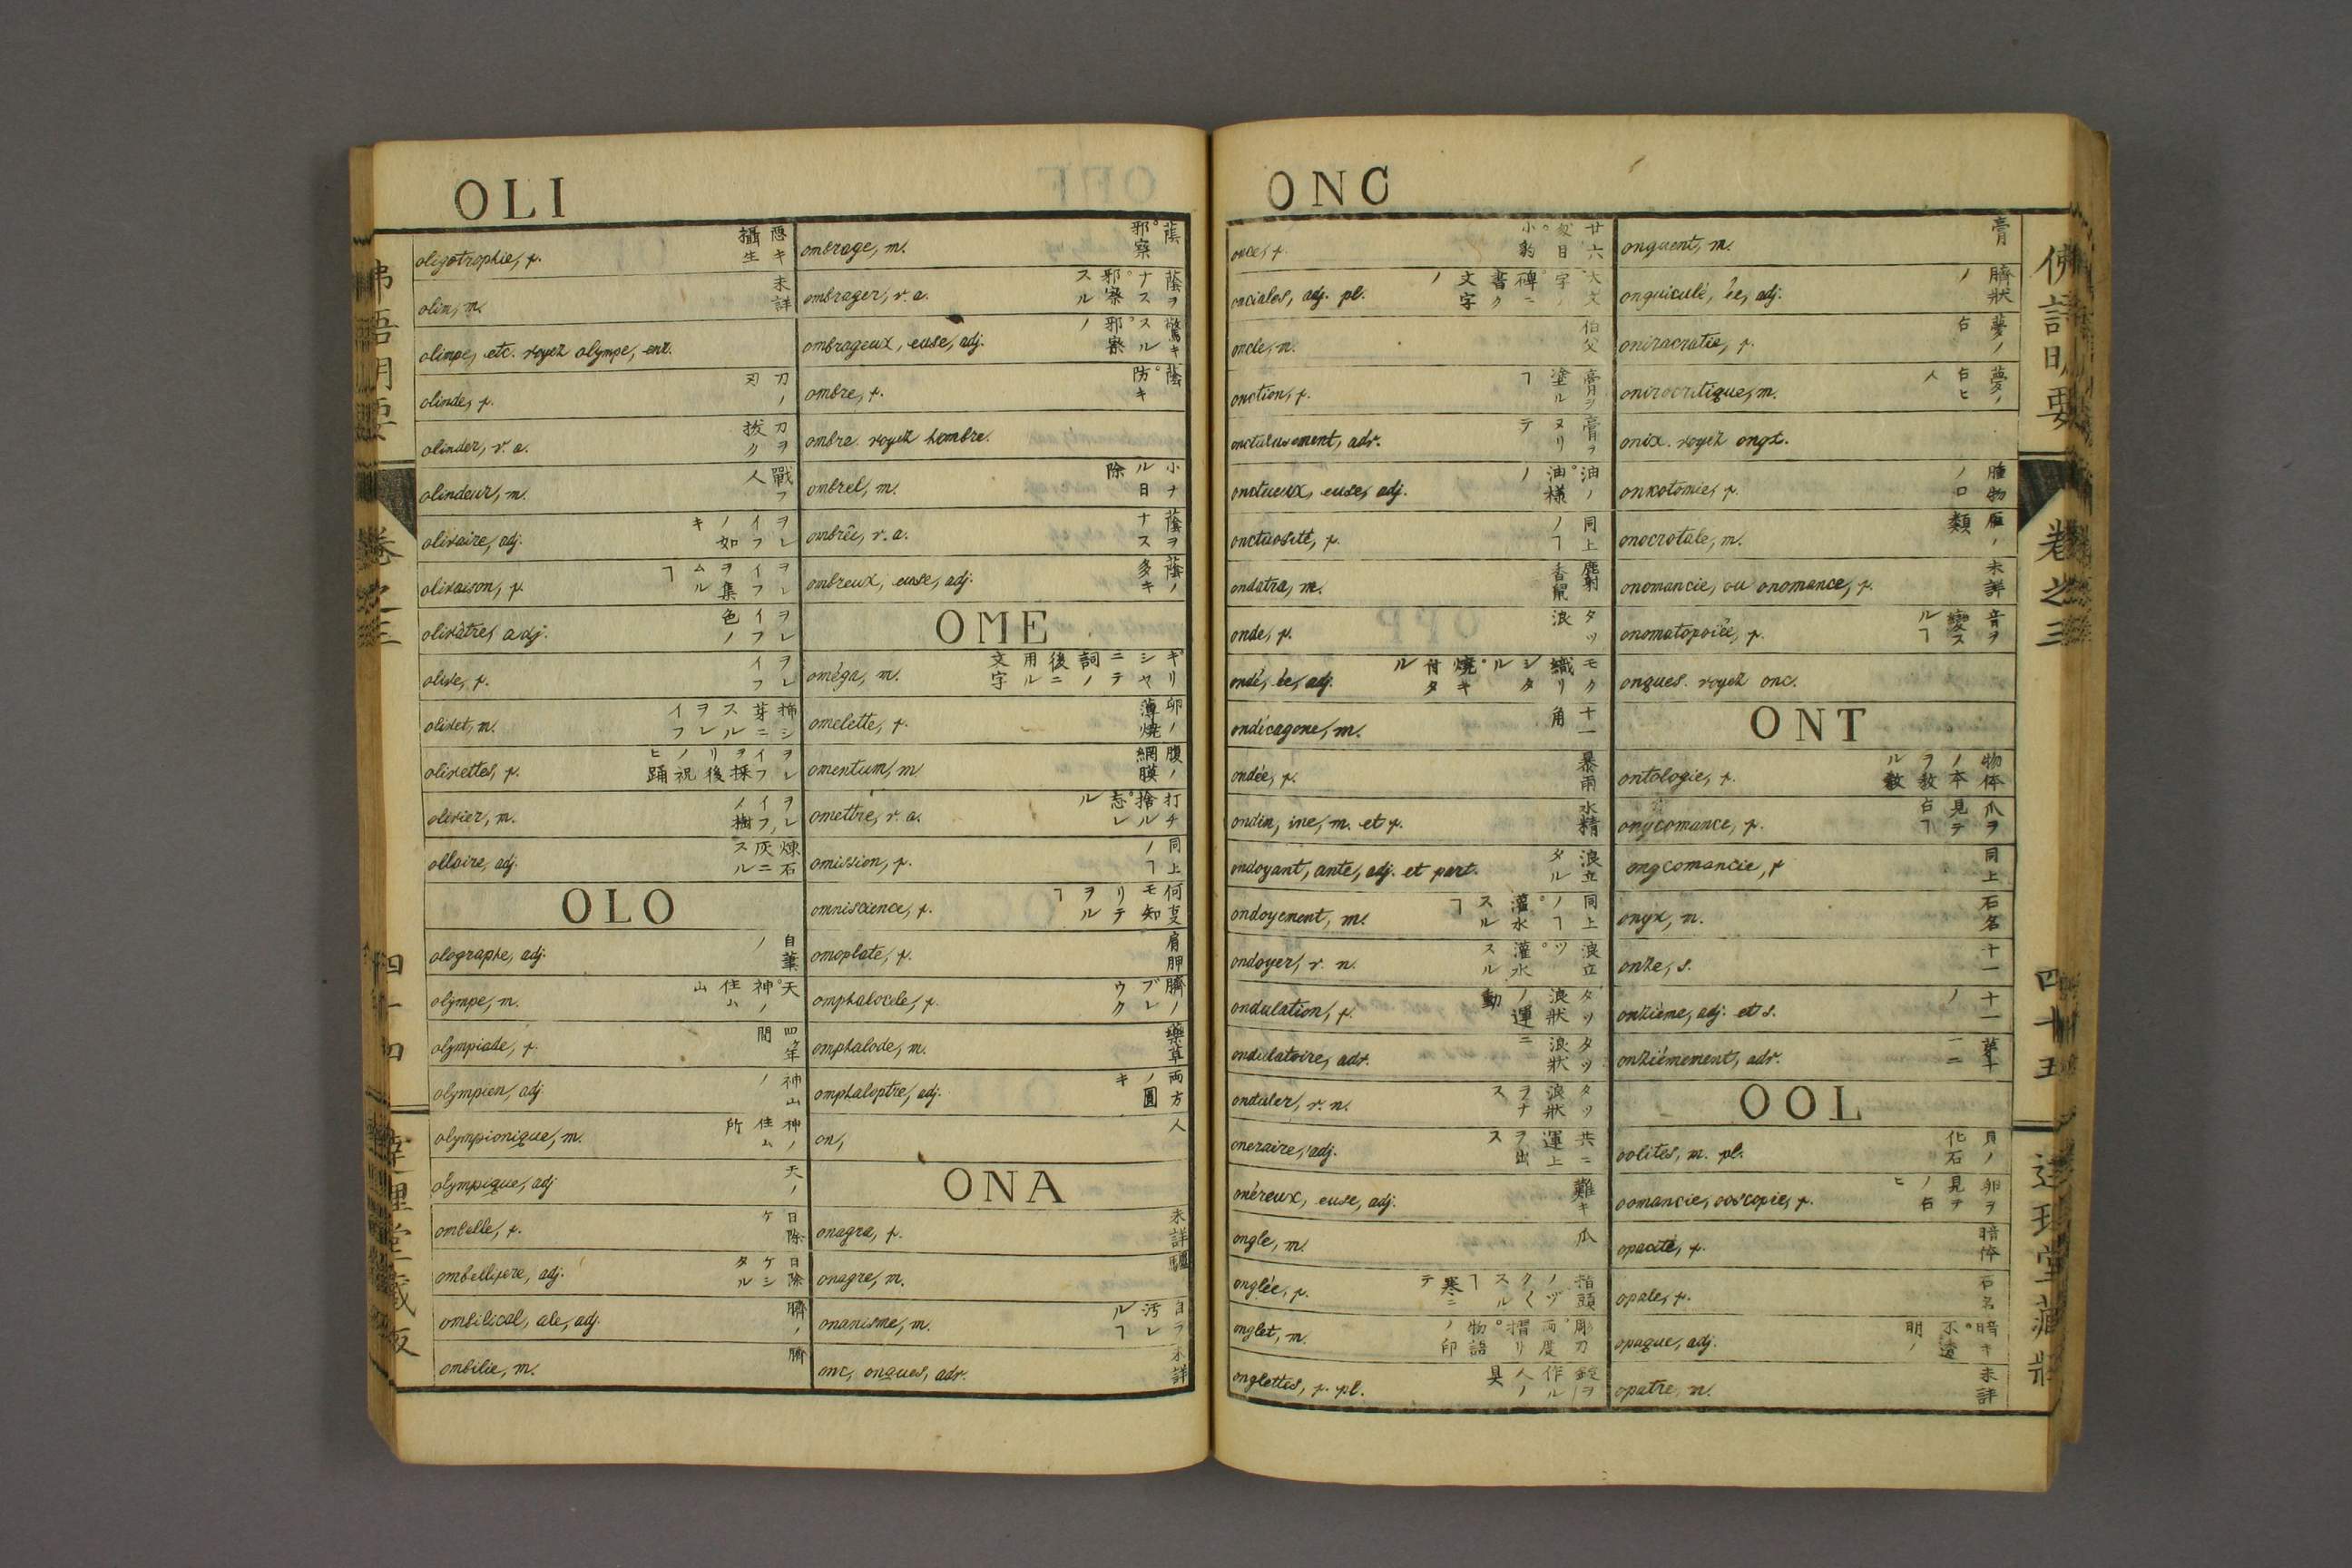 OLI
oligotrophie, f. 悪キ攝生
olim, m. 未詳
olimpe, etc. voyez olympe, enz.
olinde, f. 刀ノ刃
olinder, v. a. 刀ヲ拔ク
olindeur, m. 戰フ人
olivaire, adj. ヲレイフノ如キ
olivaison, f. ヲレイフヲ集ムルヿ
olivâtre, adj. ヲレイフ色ノ
olive, f. ヲレイフ
olivet, m. 揷シ芽ニスルヲレイフ
olivettes, f. ヲレイフヲ採リ後ノ祝ヒ踊
olivier, m. ヲレイフノ樹
ollaire, adj. 煉石灰ニスル
OLO
olographe, adj. 自筆ノ
olympe, m. 天。神ノ住ム山
olympiade, f. 四ケ年間
olympien, adj. 神山ノ
olympionique, m. 神ノ住ム所
olympique, adj 天ノ
ombelle, f. 日除ケ
ombellifere, adj. 日除ケシタル
ombilical, ale, adj. 臍ノ
ombilie, m. 臍
ombrage, m. 蔭。邪察
ombrager, v. a. 蔭ヲナス。邪察スル
ombrageux, euse, adj. 驚キスル。邪察ノ
ombre, f. 蔭。防キ
ombre. voyez hombre.
ombrel, m. 小ナル日除
ombrêi, v. a. 蔭ヲナス
ombreux, euse, adj. 蔭ノ多キ
OME
oméga, m. ギリシヤニテ詞ノ後ニ用ル文字
omelette, f. 卵ノ薄燒
omentum, m 腹ノ網膜
omettre, v. a. 打チ捨ル。忘レル
omission, f. 同上ノヿ
omniscience, f. 何事モ知リテヲルヿ
omoplate, f. 肩胛
omphalocele, f. 臍ノブレウク
omphalode, m. 藥草
omphaloptre, adj. 両方ノ圓キ
on, 人
ONA
onagra, f. 未詳
onagre, m. 驢
onanisme, m. 自ラ汚レルヿ
onc, onques, adv. 未詳
ONC
once, f. 廿六匁目。小豹
onciales, adj. pl. 大文字ノ。碑ニ書クノ文字
oncle, m. 伯父
onction, f. 膏ヲ塗ルヿ
onctueusement, adv. 膏ヲヌリテ
onctueux, euse, adj. 油ノ。油樣ノ
onctuosité, f. 同上ノヿ
ondatra, m. 麝香鼠
onde, f. タツ浪
ondé, ée, adj. モク織リシタル。燒キ付タル
ondécagone, m. 十一角
ondée, f. 暴雨
ondin, ine, m. et f. 水精
ondoyant, ante, adj. et part. 浪立タル
ondoyement, m. 同上ノヿ。灌水スルヿ
ondoyer, v. n. 浪立ツ。灌水スル
ondulation, f. タツ浪狀ノ運動
ondulatoire, adv. タツ浪狀ニ
onduler, v. n. タツ浪狀ヲナス
oneraire, adj. 共ニ運上ヲ出ス
onéreux, euse, adj. 難キ
ongle, m. 爪
onglée, f. 指頭ノヅクくスルヿ寒ニテ
onglet, m. 彫刀。両度摺リ。物語ノ印
onglettes, f. pl. 錠ヲ作ル人ノ具
onguent, m. 膏
onguiculé, ée, adj. 臍狀ノ
oniracratie, f. 夢ノ占
onirocritique, m. 夢ノ占ヒ人
onix. voyez onyx.
onkotomie, f. 腫物ノ口
onocrotale, m. 雁ノ類
onomancie, ou onomance, f. 未詳
onomatopoiée, f. 音ヲ變スルヿ
onques. voyez onc.
ONT
ontologie, f. 物体ノ本ヲ敎ル敎
onycomance, f. 爪ヲ見テ占ヿ
onycomancie, f 同上
onyx, m. 石名
onze, s. 十一
onzième, adj. et s. 十一ノ
onzièmement, adv. 第十一ニ
OOL
oolites, m. pl. 貝ノ化石
oomancie, ooscopie, f. 卵ヲ見テノ占ヒ
opacité, f. 暗体
opale, f. 石名
opaque, adj. 暗キ。不透明ノ
opatre, m. 未詳
佛語明要
卷之三
四十四
達理堂藏版
佛語明要
卷之三
四十五
達理堂藏版